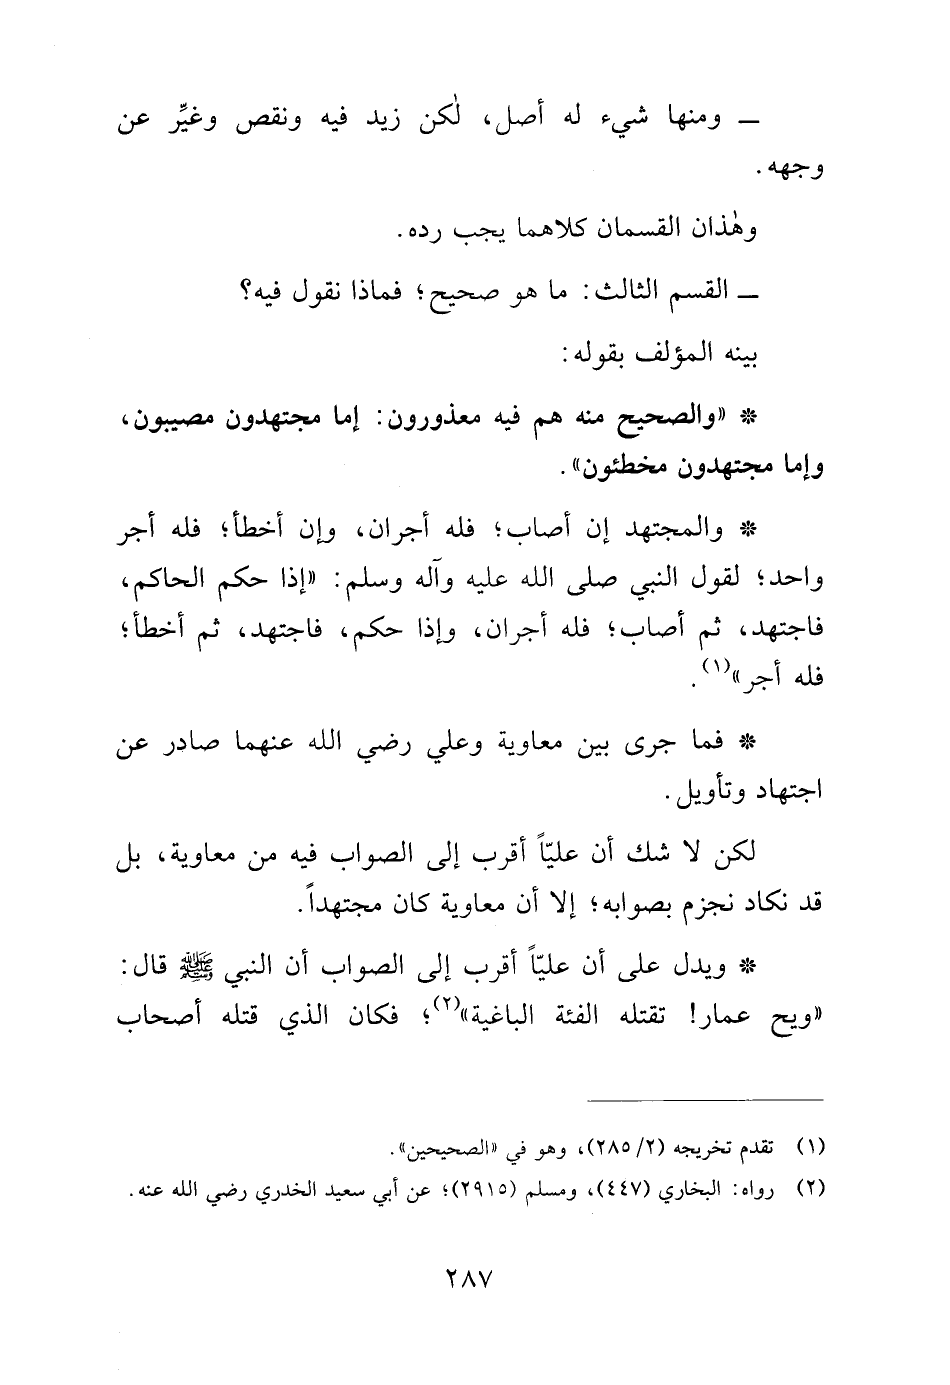 ــ ومنها شيء له أصل، لٰكن زيد فيه ونقص وغيِّر عن
وجهه.
وهٰذان القسمان كلاهما يجب رده.
ــ القسم الثالث: ما هو صحيح؛ فماذا نقول فيه؟
بينه المؤلف بقوله:
* «والصحيح منه هم فيه معذورون: إما مجتهدون مصيبون،
وإما مجتهدون مخطئون».
* والمجتهد إن أصاب؛ فله أجران، وإن أخطأ؛ فله أجر
واحد؛ لقول النبي صلى الله عليه وآله وسلم: «إذا حكم الحاكم،
فاجتهد، ثم أصاب؛ فله أجران، وإذا حكم، فاجتهد، ثم أخطأ؛
فله أجر»(١).
* فما جرى بين معاوية وعلي رضي الله عنهما صادر عن
اجتهاد وتأويل.
لكن لا شك أن عليّاً أقرب إلى الصواب فيه من معاوية، بل
قد نكاد نجزم بصوابه؛ إلا أن معاوية كان مجتهداً.
* ويدل على أن عليّاً أقرب إلى الصواب أن النبي ﷺ قال:
«ويح عمار! تقتله الفئة الباغية»(٢)؛ فكان الذي قتله أصحاب
(١) تقدم تخريجه (٢/ ٢٨٥)، وهو في «الصحيحين».
(٢) رواه: البخاري (٤٤٧)، ومسلم (٢٩١٥)؛ عن أبي سعيد الخدري رضي الله عنه.
٢٨٧